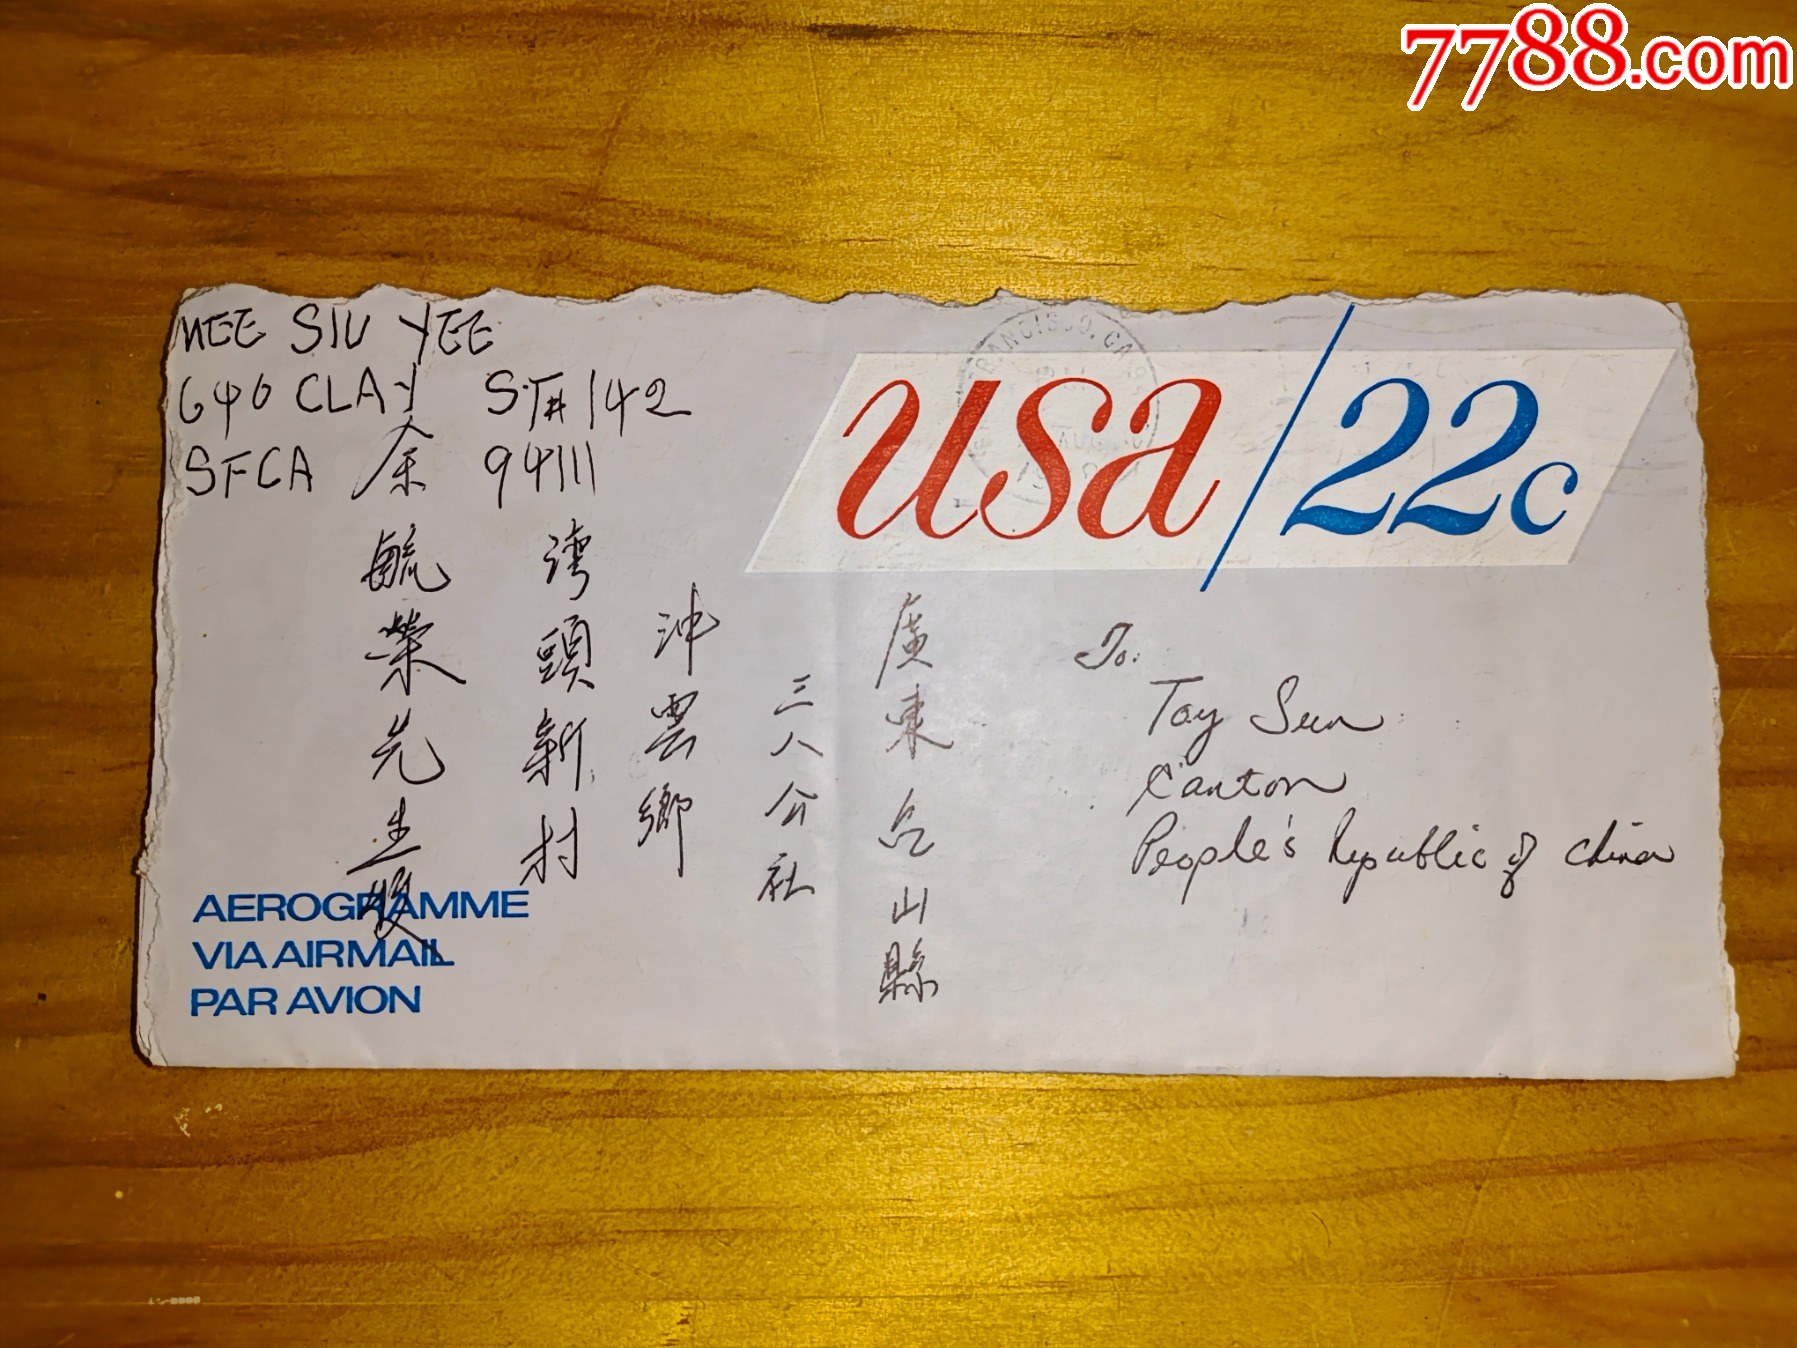 7788.com
NEE SIU YEE
640 CLAY ST #142
SFCA 94111
FRANCISCO, CA
AUG
usa/22c
To:
Toy Sun
Canton
People's Republic of China
廣東台山縣
三八公社
沖雲鄉
湾頭新村
余毓榮先生收
AEROGRAMME
VIA AIRMAIL
PAR AVION